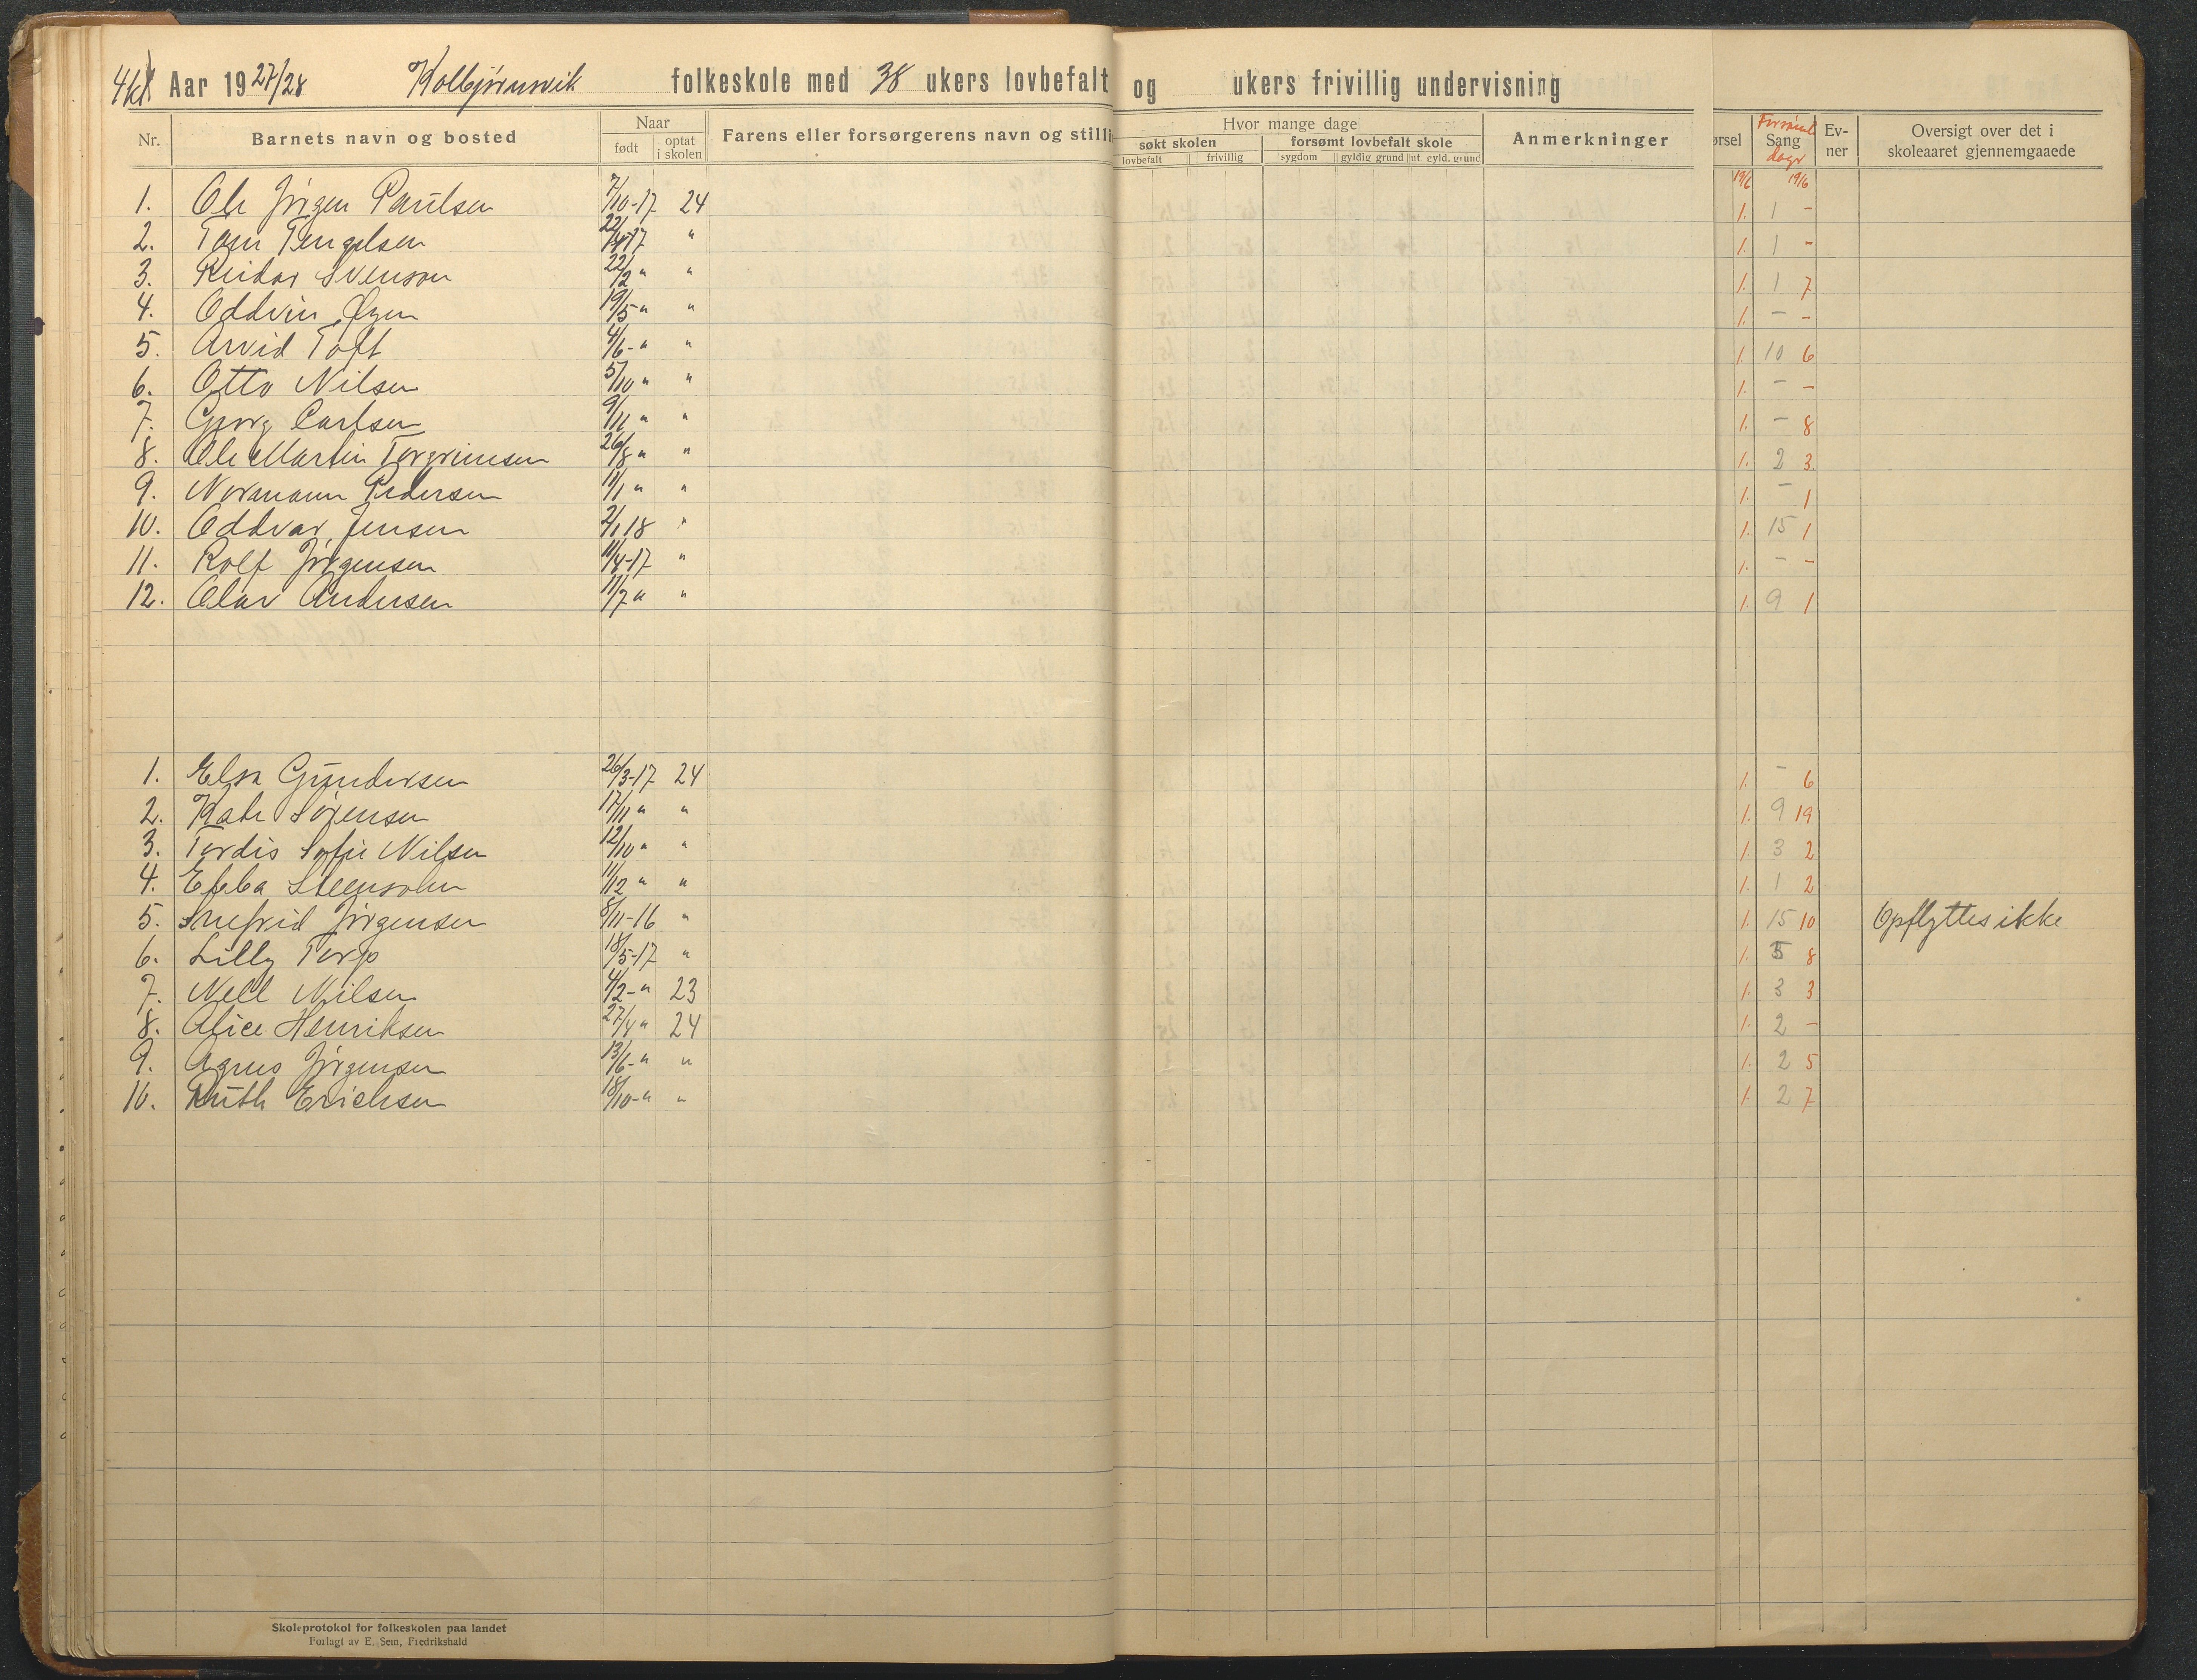 4 kl. Aar 1927/28 Kolbjørnsvik folkeskole med 38 ukers lovbefalt og ukers frivillig undervisning
Nr. Barnets navn og bosted Naar født optat i skolen Farens eller forsørgerens navn og stilli Hvor mange dage søkt skolen lovbefalt frivillig forsømt lovbefalt skole sygdom gyldig grund ut. gyld. grund Anmerkninger ørsel Forsømt Sang dage Ev-ner Oversigt over det i skoleaaret gjennemgaaede
19/6 19/6
1. Ole Jörgen Paulsen 7/10-17 24 1. 1 -
2. Tom Tengelsen 22/4-17 " 1. 1 -
3. Reidar Svenson 22/2 " " 1. 1 7
4. Oddvin Øyen 19/5- " " 1. - -
5. Arvid Toft 4/6- " " 1. 10 6
6. Otto Nilsen 5/10 " " 1. - -
7. Georg Carlsen 9/11 " " 1. - 8
8. Ole Martin Torgrimsen 26/8 " " 1. 2 3.
9. Normann Pedersen 11/1 " " 1. - 1
10. Oddvar Jensen 2/1 18 " 1. 15 1
11. Rolf Jörgensen 11/4-17 " 1. - -
12. Olav Andersen 11/7 " " 1. 9 1
1. Elsa Gundersen 26/3-17 24 1. - 6
2. Kate Sörensen 17/11 " " 1. 9 19
3. Tordis Sofie Nilsen 12/10 " " 1. 3 2
4. Ebba Steensohn 11/12 " " 1. 1 2
5. Snefrid Jörgensen 8/11-16 " 1. 15 10 Opflyttes ikke
6. Lilly Torp 18/5-17 " 1. 5 8
7. Nell Nilsen 4/2- " 23 1. 3 3
8. Alice Henriksen 27/4 " 24 1. 2 -
9. Agnes Jörgensen 13/6- " " 1. 2 5
10. Ruth Erichsen 18/10- " " 1. 2 7
Skoleprotokol for folkeskolen paa landet
Forlagt av E. Sem, Fredrikshald